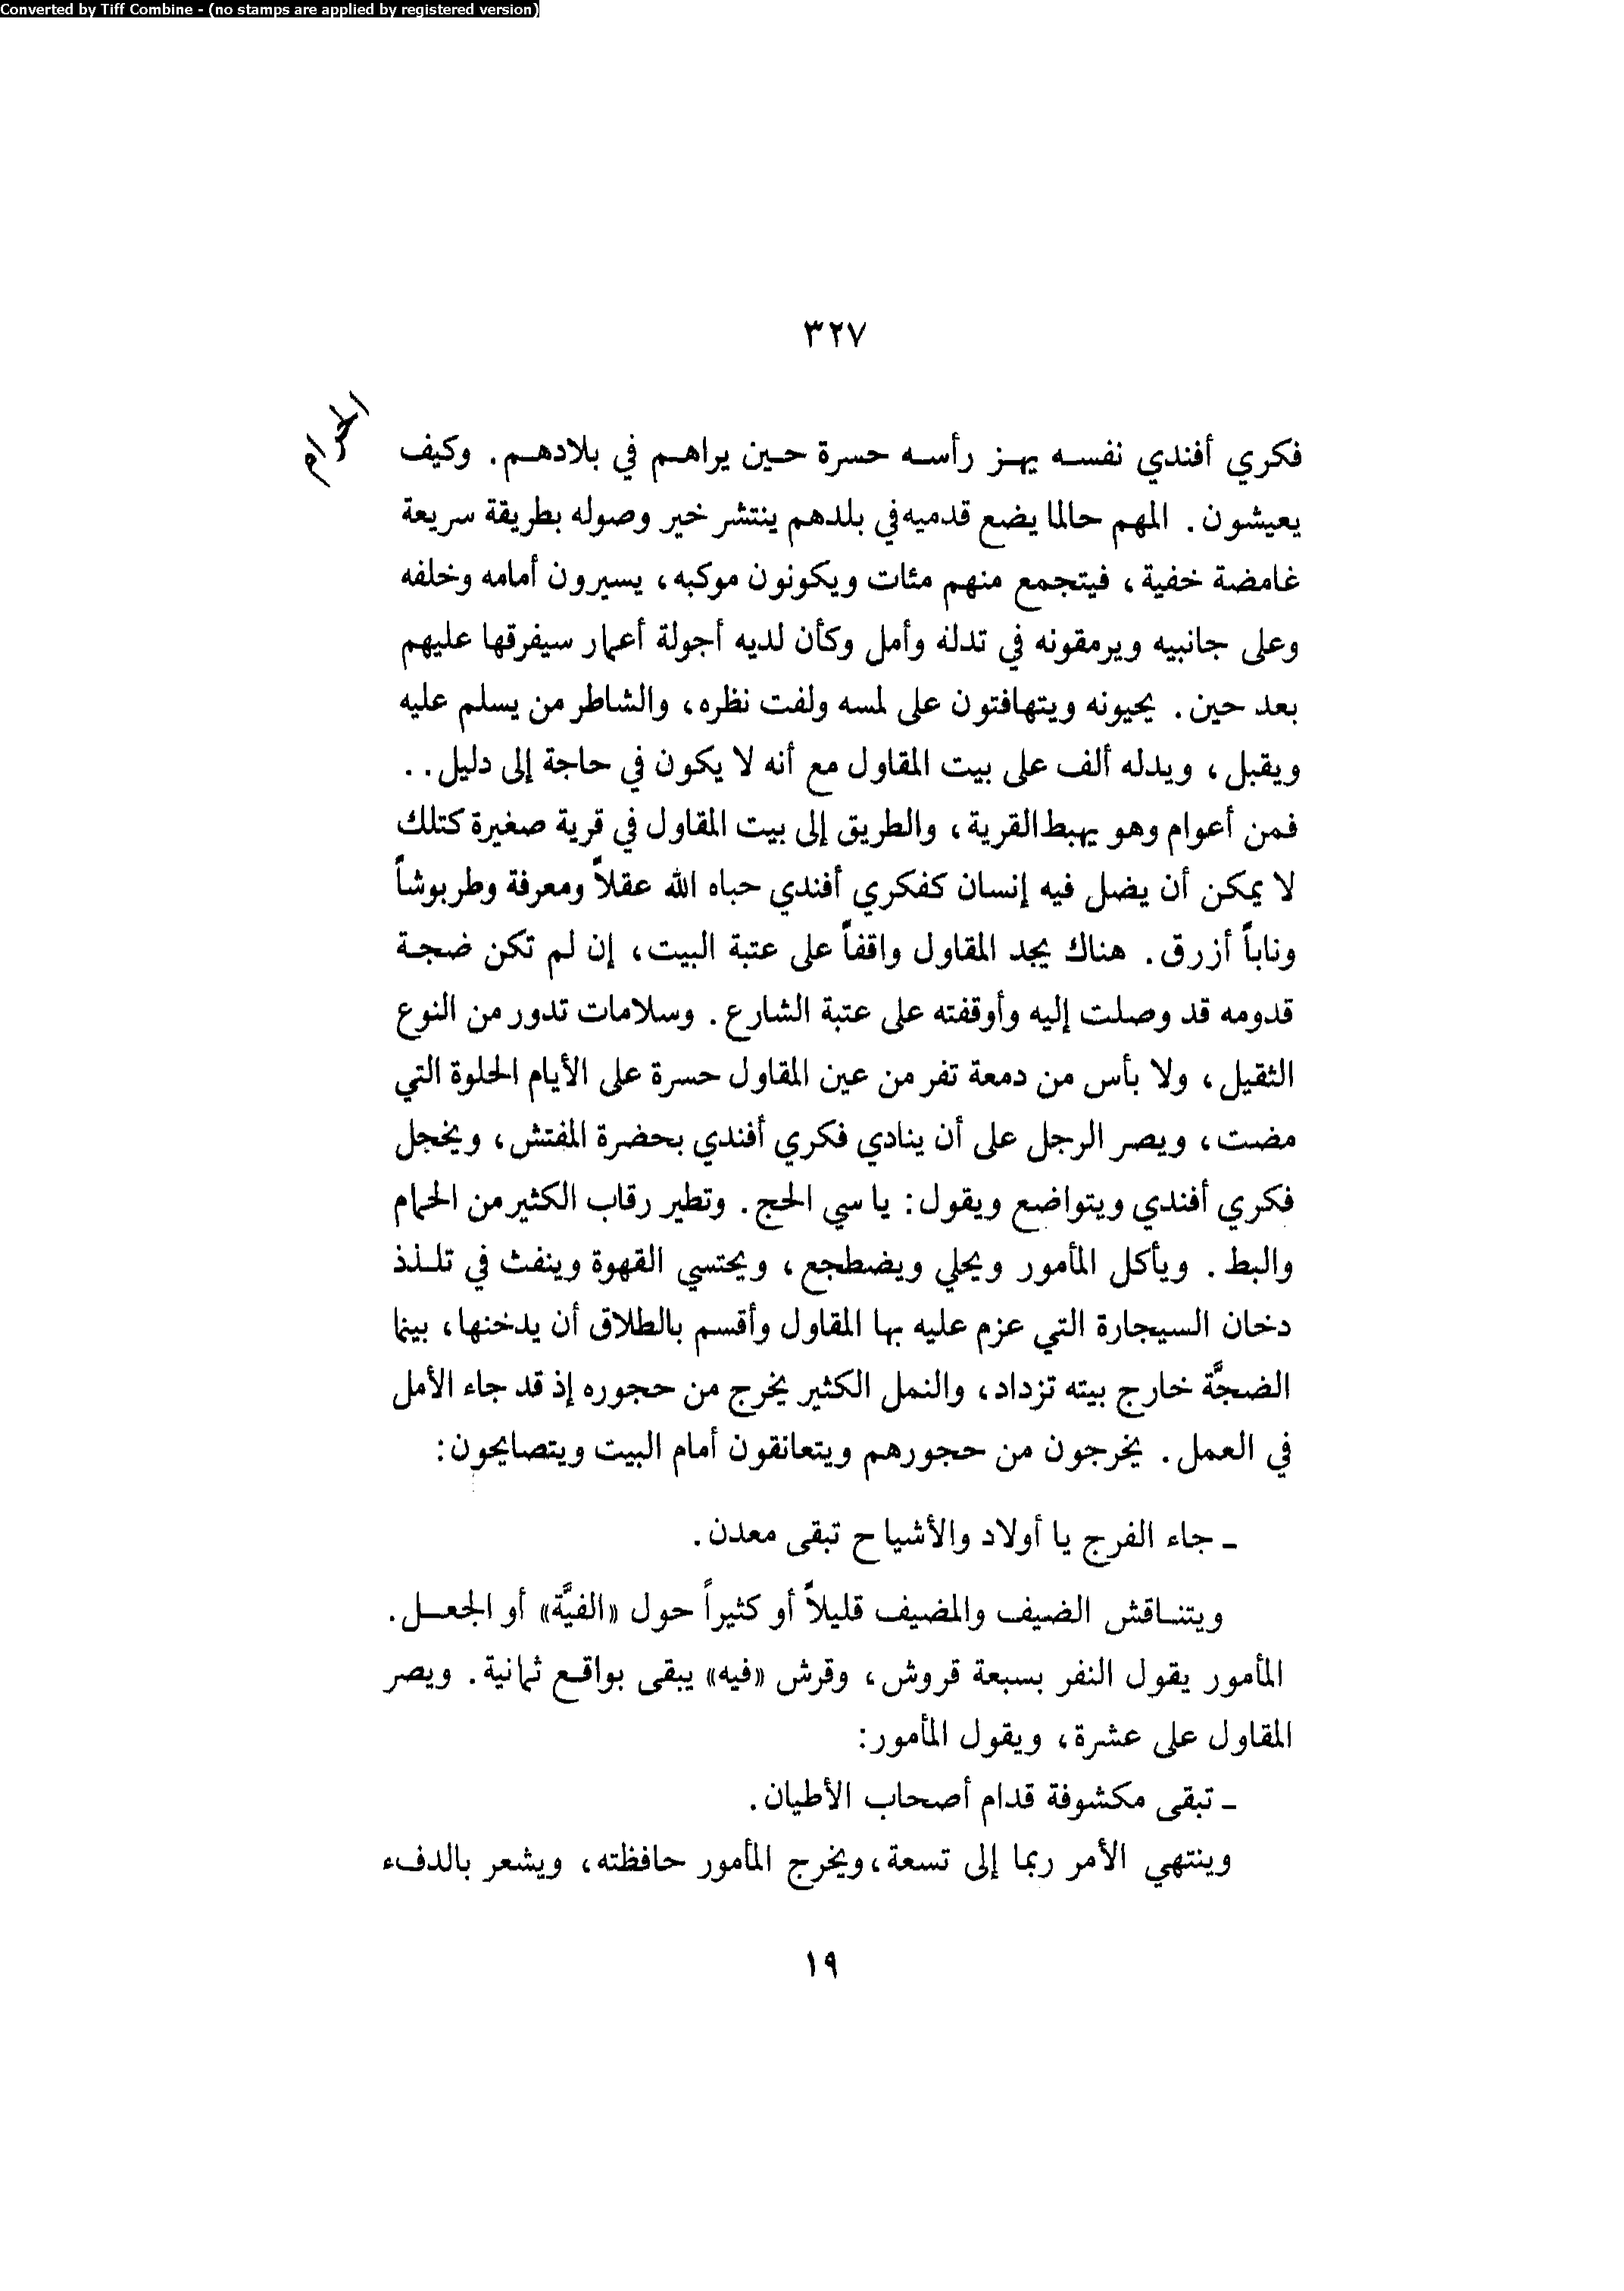 Converted by Tiff Combine - (no stamps are applied by registered version)
٣٢٧
الحرام
فكري أفندي نفسه يهز رأسه حسرة حين يراهم في بلادهم. وكيف
يعيشون. المهم حالما يضع قدميه في بلدهم ينتشر خبر وصوله بطريقة سريعة
غامضة خفية، فيتجمع منهم مئات ويكونون موكبه، يسيرون أمامه وخلفه
وعلى جانبيه ويرمقونه في تدله وأمل وكأن لديه أجولة أعمار سيفرقها عليهم
بعد حين. يحيونه ويتهافتون على لمسه ولفت نظره، والشاطر من يسلم عليه
ويقبل، ويدله ألف على بيت المقاول مع أنه لا يكون في حاجة إلى دليل..
فمن أعوام وهو يهبط القرية، والطريق إلى بيت المقاول في قرية صغيرة كتلك
لا يمكن أن يضل فيه إنسان كفكري أفندي حباه الله عقلاً ومعرفة وطربوشاً
وناباً أزرق. هناك يجد المقاول واقفاً على عتبة البيت، إن لم تكن ضجة
قدومه قد وصلت إليه وأوقفته على عتبة الشارع. وسلامات تدور من النوع
الثقيل، ولا بأس من دمعة تفر من عين المقاول حسرة على الأيام الحلوة التي
مضت، ويصر الرجل على أن ينادي فكري أفندي بحضرة المفتش، ويخجل
فكري أفندي ويتواضع ويقول: يا سي الحج. وتطير رقاب الكثير من الحمام
والبط. ويأكل المأمور ويحلي ويضطجع، ويحتسي القهوة وينفث في تلذذ
دخان السيجارة التي عزم عليه بها المقاول وأقسم بالطلاق أن يدخنها، بينما
الضجَّة خارج بيته تزداد، والنمل الكثير يخرج من حجوره إذ قد جاء الأمل
في العمل. يخرجون من حجورهم ويتعانقون أمام البيت ويتصايحون:
ـ جاء الفرج يا أولاد والأشيا ح تبقى معدن.
ويتناقش الضيف والمضيف قليلاً أو كثيراً حول «الفيَّة» أو الجعل.
المأمور يقول النفر بسبعة قروش، وقرش «فيه» يبقى بواقع ثمانية. ويصر
المقاول على عشرة، ويقول المأمور:
ـ تبقى مكشوفة قدام أصحاب الأطيان.
وينتهي الأمر ربما إلى تسعة، ويخرج المأمور حافظته، ويشعر بالدفء
١٩